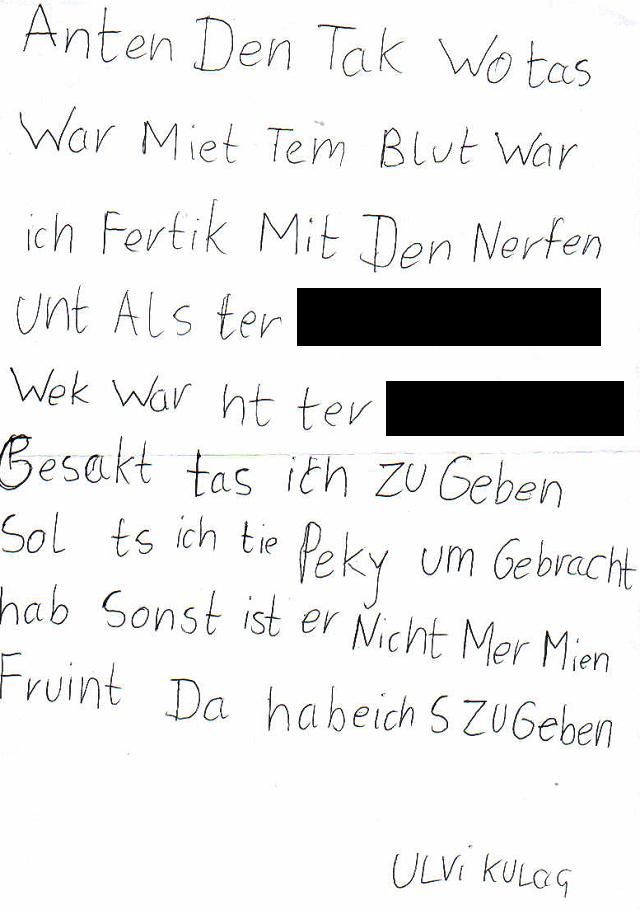 Anten Den Tak Wo tas
War Miet Tem Blut War
ich Fertik Mit Den Nerfen
unt Als ter
Wek War ht ter
Besakt tas ich zu Geben
Sol ts ich tie Peky um Gebracht
hab Sonst ist er Nicht Mer Mien
Fruint Da habeich S ZUGeben
ULVi KULAG